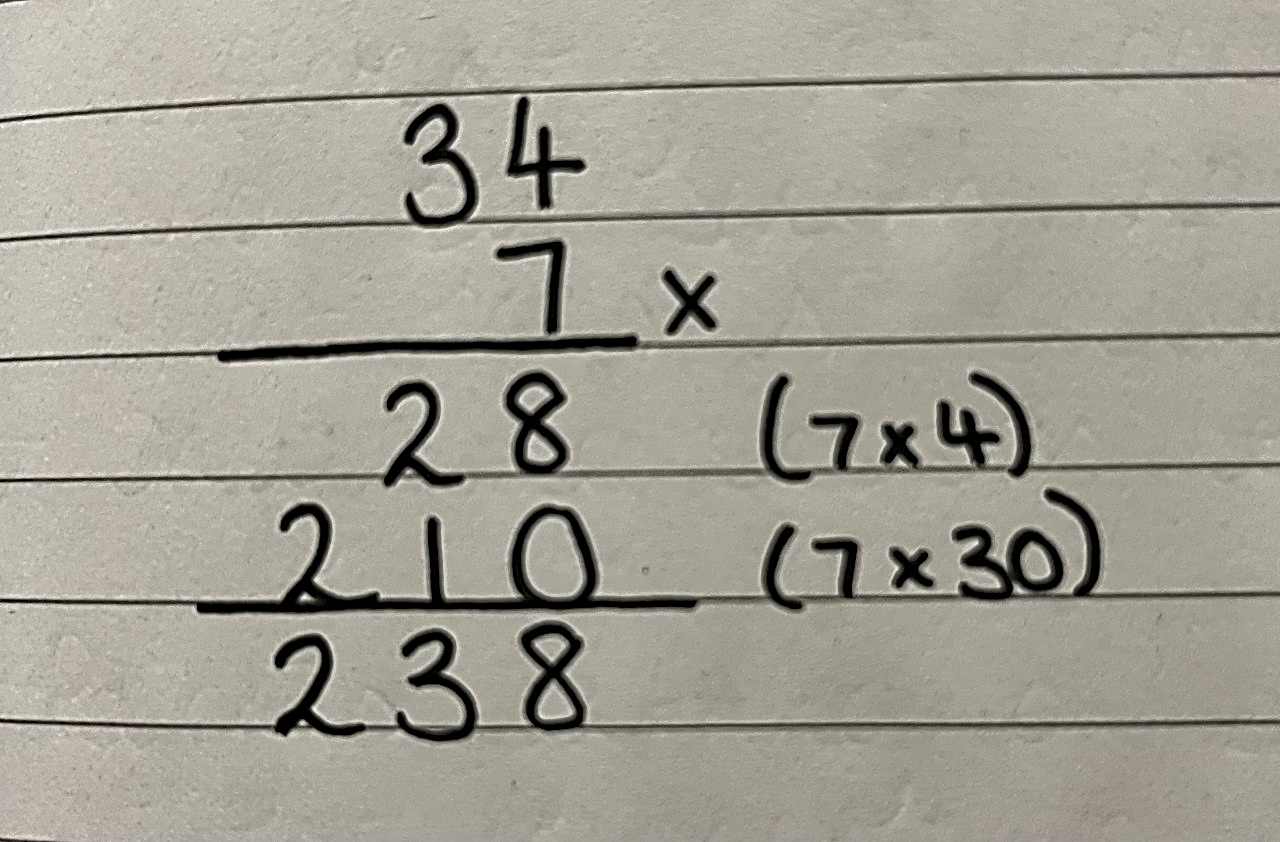 34
7 x
28 (7x4)
210 (7x30)
238